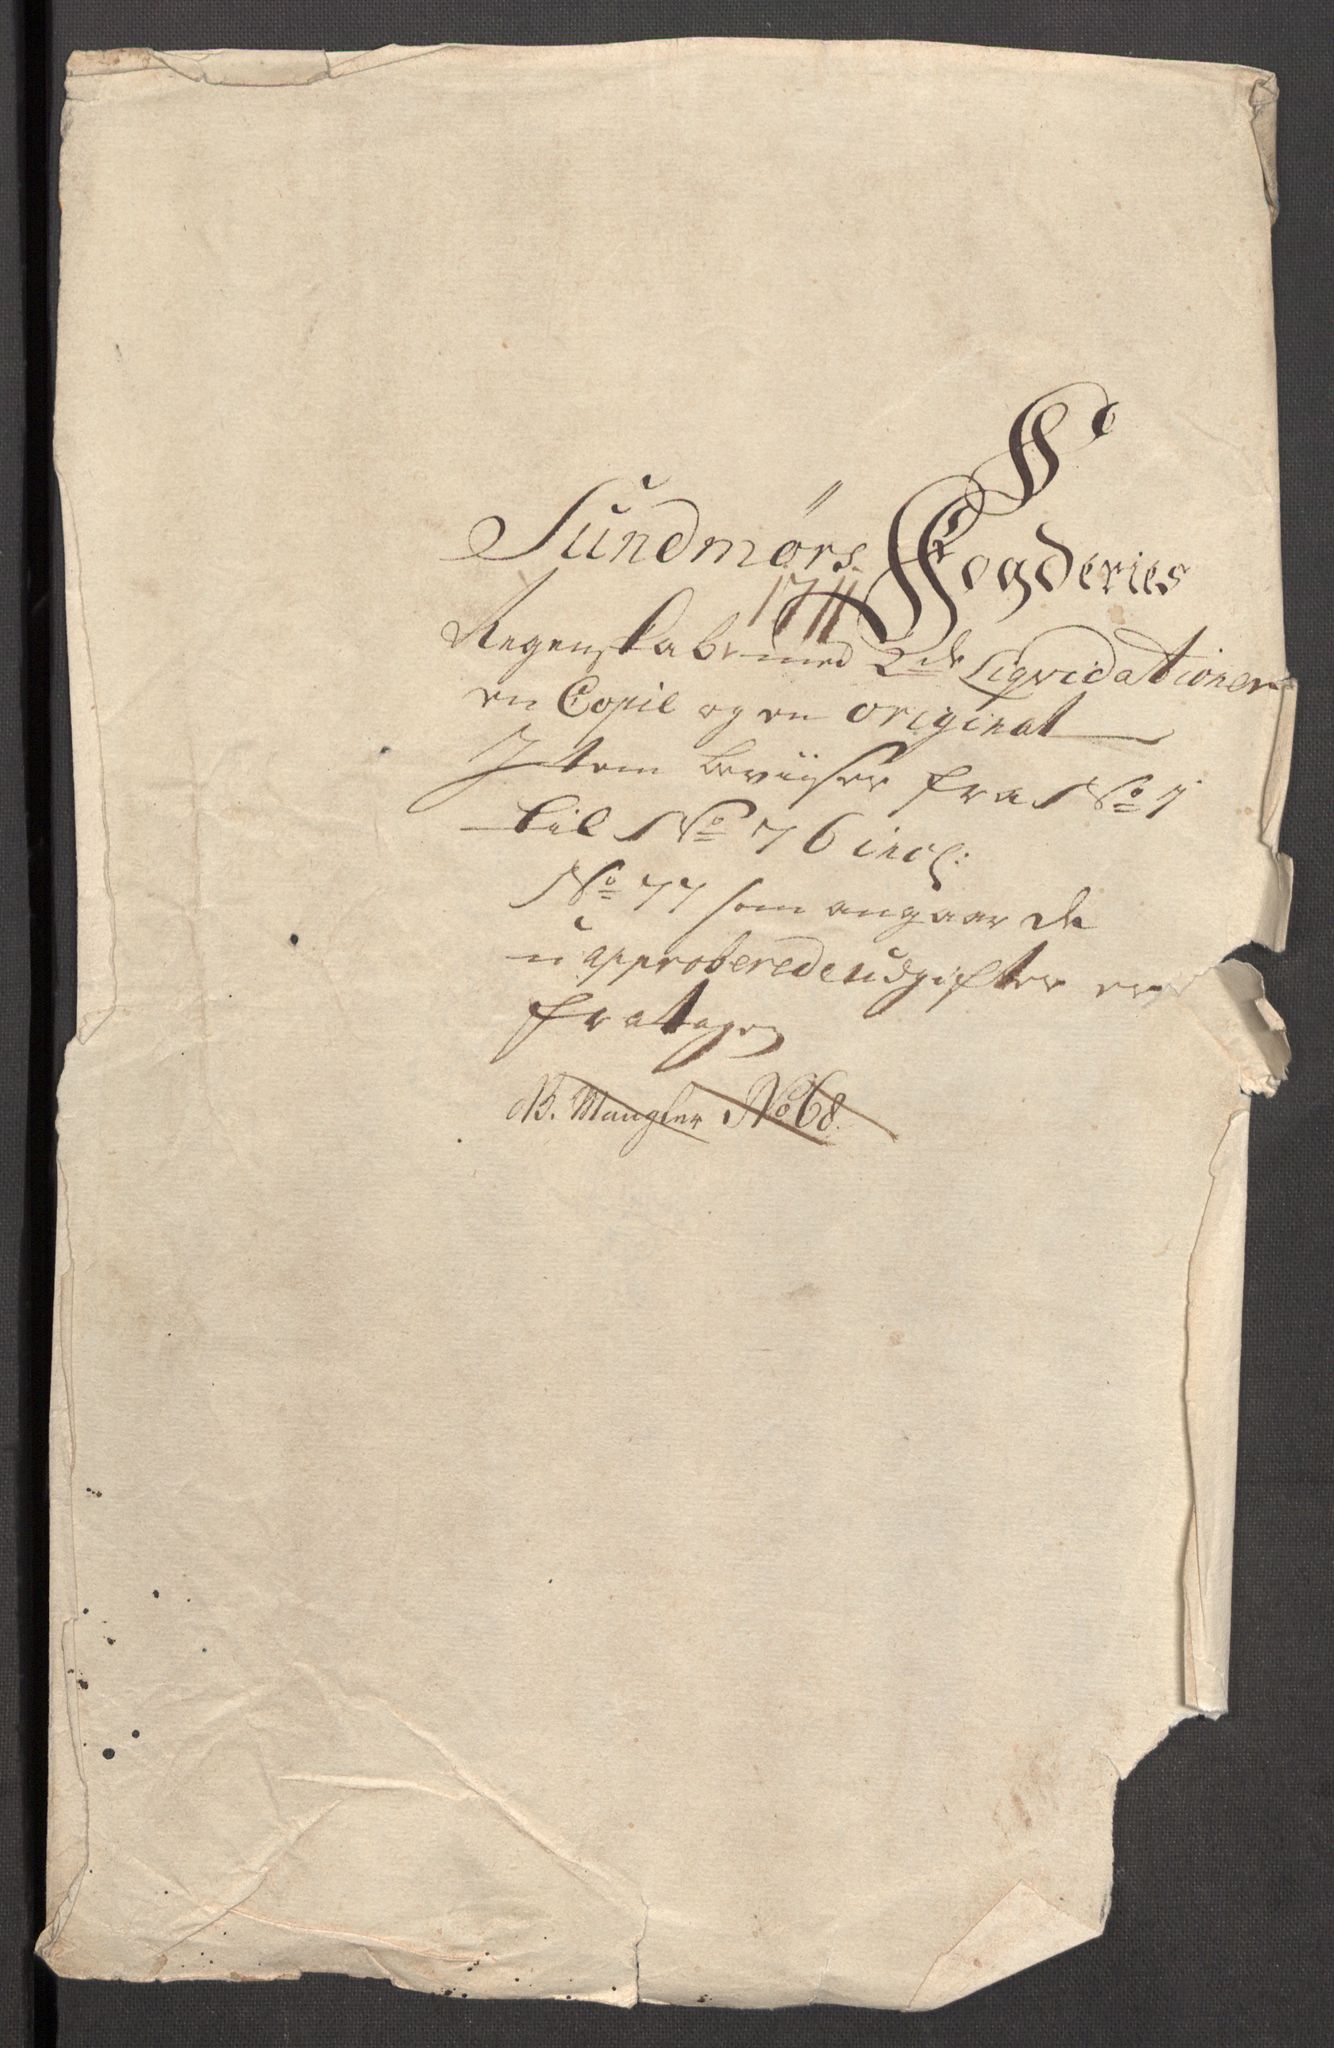 Sundmørs Fogderies
1711
Regenskaber med 2de Liqvidationer
en Copie og en original
Jtem beviiser fra No 1
til No 76 incl:
No 77 som angaar de
uapproberede udgifter er
fratagen
NB. Mangler No 68.